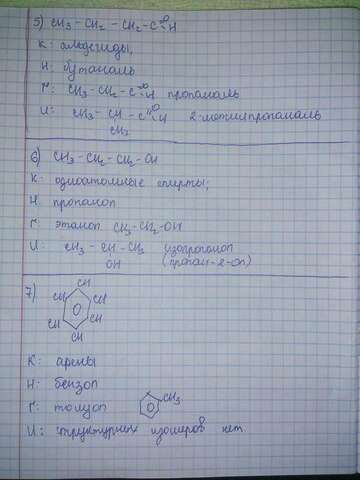 5) CH₃ - CH₂ - CH₂ - C =O H
К: альдегиды,
Н: бутаналь
Г: CH₃ - CH₂ - C =O H пропаналь
И: CH₃ - CH - C =O H 2-метилпропаналь
CH₃
6) CH₃ - CH₂ - CH₂ - OH
К: одноатомные спирты;
Н: пропанол
Г: этанол CH₃-CH₂-OH
И: CH₃ - CH - CH₃ изопропанол
OH (пропан-2-ол)
7) CH
CH CH
O
CH CH
CH
К: арены
Н: бензол
Г: толуол CH₃
И: структурных изомеров нет.